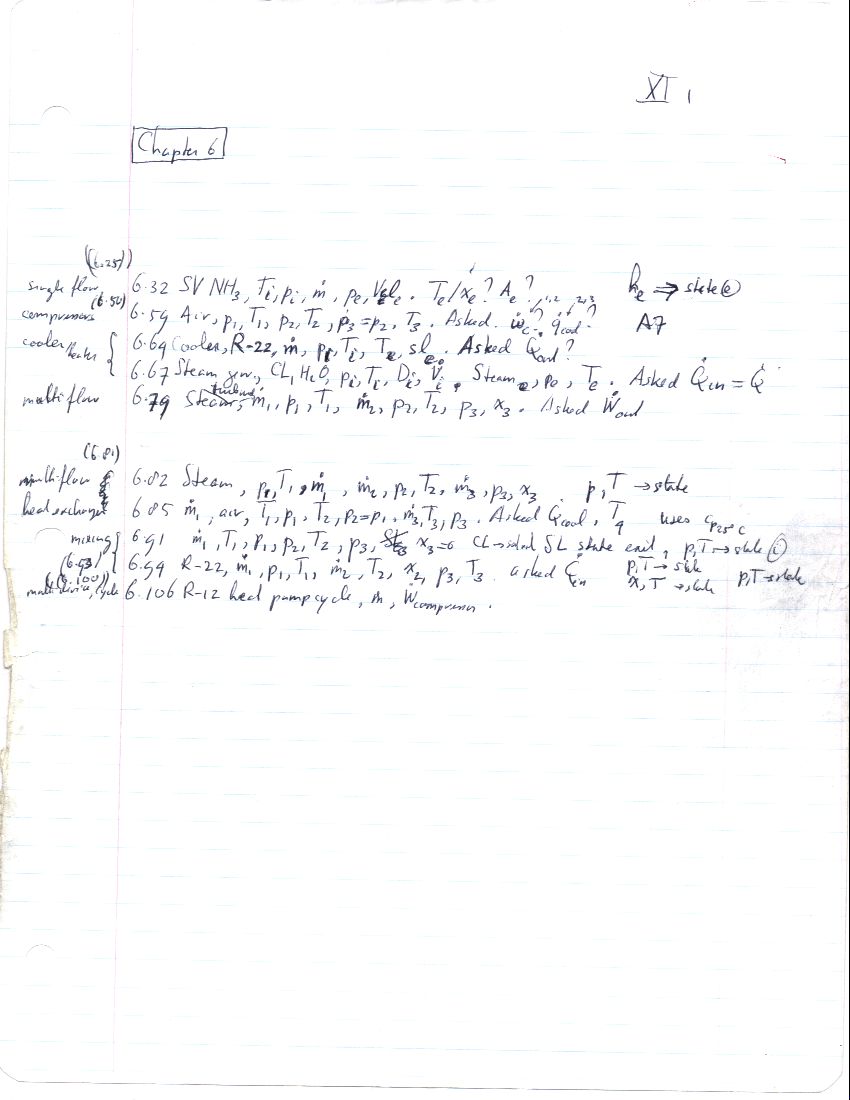 XI 1
Chapter 6
((6.25))
single flow 6.32 SV NH3, Ti, pi, ṁ, pe, Vele. Te/xe? Ae? he ⇒ state (e)
compressors (6.50) 6.59 Air, p1, T1, p2, T2, p3=p2, T3. Asked ẇc? 1,2 q̇cool? 2,3 A7
cooler/heater { 6.64 Cooler, R-22, ṁ, pi, Ti, Te, sl e. Asked Q̇out?
6.67 Steam gen., CL, H2O, pi, Ti, Di, V̇i. Steam e, pe, Te. Asked Q̇in = Q̇
multiflow 6.79 Steam turbine, ṁ1, p1, T1, ṁ2, p2, T2, p3, x3. Asked Ẇout
(6.81)
multiflow 6.82 Steam, p1, T1, ṁ1, ṁ2, p2, T2, ṁ3, p3, x3. p,T → state
heat exchanger 6.85 ṁ1, air, T1, p1, T2, p2=p1, ṁ3, T3, p3. Asked Q̇cool, T4 uses cp25°C
mixing { 6.91 ṁ1, T1, p1, p2, T2, p3, x3=0 CL → SL state exit, p,T → state (i)
(6.93) 6.94 R-22, ṁ1, p1, T1, ṁ2, T2, x2, p3, T3. asked Q̇in p,T → state
((6.100)) x,T → state p,T → state
multi device, cycle 6.106 R-12 heat pump cycle, ṁ, Ẇcompressor.